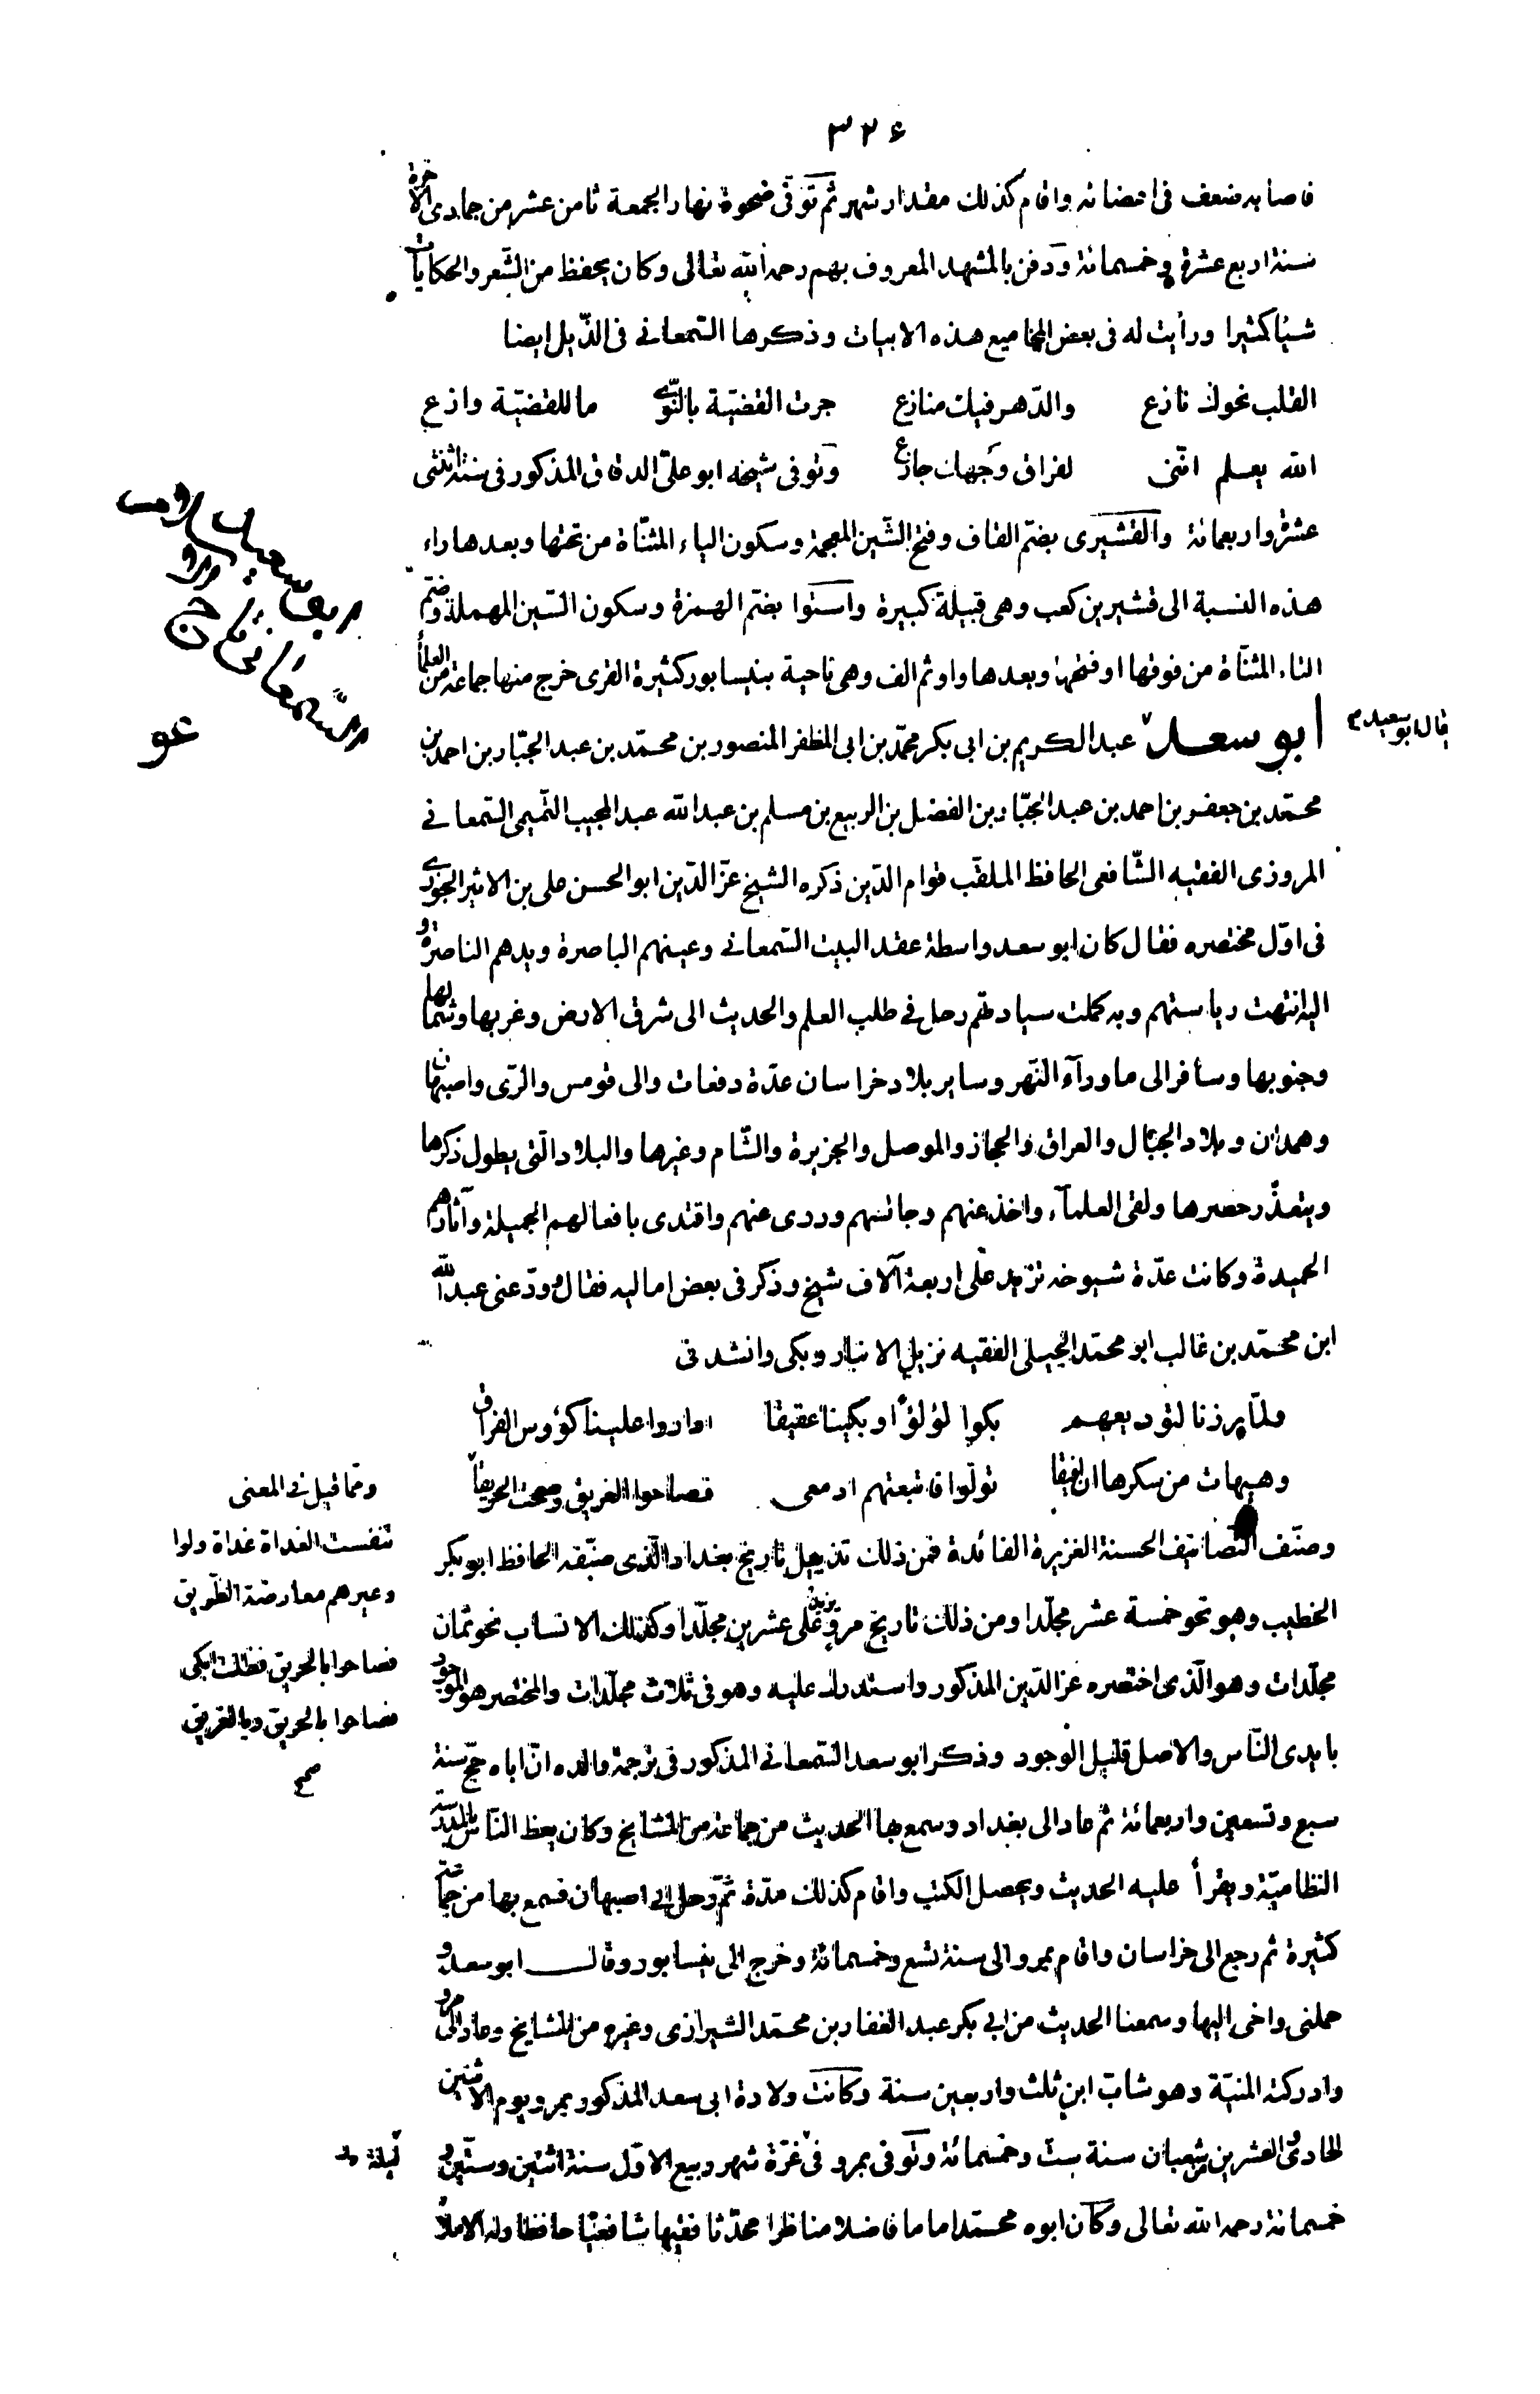 ٣٢٤
فاصابه ضعف فى اعضائه واقام كذلك مقدار شهر ثم توفى ضحوة نهار الجمعة ثامن عشر من جمادى الاخرة
سنة اربع عشرة وخمسمائة ودفن بالمشهد المعروف بهم رحمه الله تعالى وكان يحفظ من الشعر والحكايات
شيئا كثيرا ورأيت له فى بعض المجاميع هذه الابيات وذكرها السمعانى فى الذيل ايضا
القلب نحوك نازع والدهر فيك منازع جرت القضية بالنوى ما للقضية وازع
الله يعلم اننى لفراق وجهك جازع وتوفى شيخه ابو على الدقاق المذكور فى سنة اثنتى
عشرة واربعمائة والقشيرى بضم القاف وفتح الشين المعجمة وسكون الياء المثناة من تحتها وبعدها راء
هذه النسبة الى قشير بن كعب وهى قبيلة كبيرة واستوا بضم الهمزة وسكون السين المهملة وضم
التاء المثناة من فوقها او فتحها وبعدها واو ثم الف وهى ناحية بنيسابور كثيرة القرى خرج منها جماعة من العلماء
ابو سعد عبد الكريم بن ابى بكر محمد بن ابى المظفر المنصور بن محمد بن عبد الجبار بن احمد بن
محمد بن جعفر بن احمد بن عبد الجبار بن الفضل بن الربيع بن مسلم بن عبد الله عبد المجيب التميمى السمعانى
المروزى الفقيه الشافعى الحافظ الملقب قوام الدين ذكره الشيخ عز الدين ابو الحسن على بن الاثير الجزرى
فى اول مختصره فقال كان ابو سعد واسطة عقد البيت السمعانى وعينهم الباصرة ويدهم الناصرة و
اليه انتهت رياستهم وبه كملت سيادتهم رحل فى طلب العلم والحديث الى شرق الارض وغربها وشمالها
وجنوبها وسافر الى ما ورآء النهر وساير بلاد خراسان عدة دفعات والى قومس والرى واصبهان
وهمدان وبلاد الجبال والعراق والحجاز والموصل والجزيرة والشام وغيرها والبلاد التى يطول ذكرها
ويتعذر حصرها ولقى العلمآء واخذ عنهم وجالسهم وروى عنهم واقتدى بافعالهم الجميلة وآثارهم
الحميدة وكانت عدة شيوخه تزيد على اربعة آلاف شيخ وذكر فى بعض اماليه فقال ودعنى عبد الله
ابن محمد بن غالب ابو محمد الجيلى الفقيه نزيل الانبار وبكى وانشدنى
ولما برزنا لتوديعهم بكوا لؤلؤا وبكينا عقيقا اداروا علينا كؤوس الفراق
وهيهات من سكرها ان نفيقا تولوا فاتبعتهم ادمعى فصاحوا الغريق وصحت الحريقا
وصنف التصانيف الحسنة الغزيرة الفائدة فمن ذلك تذييل تاريخ بغداد الذى صنفه الحافظ ابو بكر
الخطيب وهو نحو خمسة عشر مجلدا ومن ذلك تاريخ مرو يزيد على عشرين مجلدا وكذلك الانساب نحو ثمان
مجلدات وهو الذى اختصره عز الدين المذكور واستدرك عليه وهو فى ثلاث مجلدات والمختصر هو الموجود
بايدى الناس والاصل قليل الوجود وذكر ابو سعد السمعانى المذكور فى ترجمة والده ان اباه حج سنة
سبع وتسعين واربعمائة ثم عاد الى بغداد وسمع بها الحديث من جماعة من المشايخ وكان يعظ الناس بالمدرسة
النظامية ويقرأ عليه الحديث ويحصل الكتب واقام كذلك مدة ثم رحل الى اصبهان فسمع بها من جماعة
كثيرة ثم رجع الى خراسان واقام بمرو الى سنة تسع وخمسمائة وخرج الى نيسابور وقال ابو سعد و
حملنى واخى اليها وسمعنا الحديث من ابى بكر عبد الغفار بن محمد الشيرازى وغيره من المشايخ وعاد الى مرو
وادركته المنية وهو شاب ابن ثلث واربعين سنة وكانت ولادة ابى سعد المذكور بمرو يوم الاثنين
الحادى والعشرين من شعبان سنة ست وخمسمائة وتوفى بمرو فى غرة شهر ربيع الاول سنة اثنتين وستين و
خمسمائة رحمه الله تعالى وكان ابوه محمد اماما فاضلا مناظرا محدثا فقيها شافعيا حافظا وله الاملاء
السمعانى
ومما قيل فى المعنى
تنفست الغداة غداة ولوا
وعيرهم معارضة الطريق
فصاحوا بالحريق فظلت ابكى
فصاحوا بالحريق وبالغريق
صح
ليلة